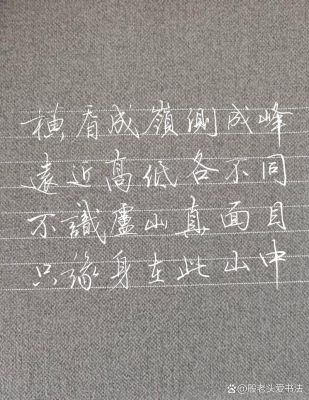 橫看成嶺側成峰
遠近高低各不同
不識廬山真面目
只緣身在此山中
@殷老头爱书法